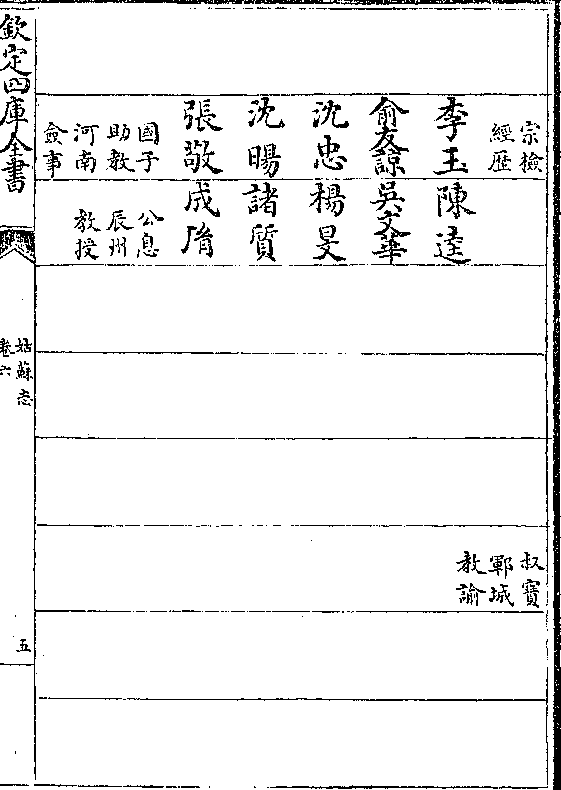 宗檢
經歴
李玉
俞友諒
沈忠
沈暘
張敬
國子
助教
河南
僉事
陳逵
吳文華
楊旻
諸質
成胤
公息
辰州
教授
叔寶
鄆城
教諭
欽定四庫全書
姑蘇志
卷六
五